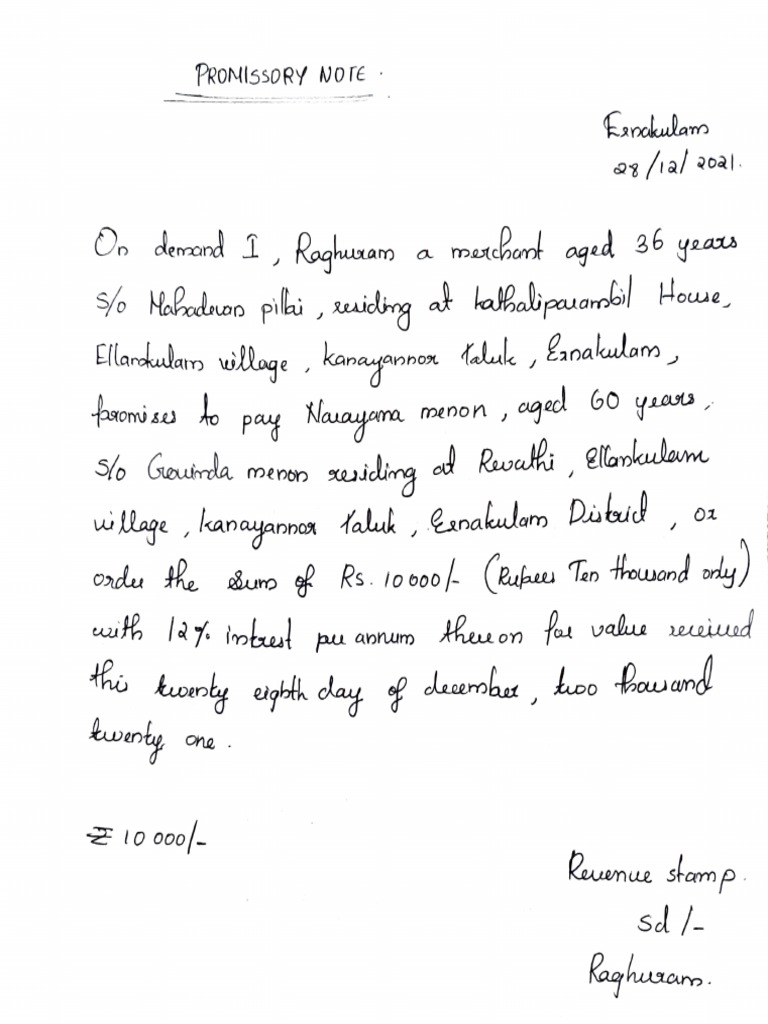 PROMISSORY NOTE.
Ernakulam
28/12/2021.
On demand I, Raghuram a merchant aged 36 years
S/o Mahadevan pillai, residing at kathaliparambil House,
Ellamkulam village, kanayannor taluk, Ernakulam,
promises to pay Narayana menon, aged 60 years,
S/o Govinda menon residing at Revathi, Ellamkulam
village, kanayannor taluk, Ernakulam District, or
order the sum of Rs. 10000/- (Rupees Ten thousand only)
with 12% intrest per annum thereon for value received
this twenty eighth day of december, two thousand
twenty one.
₹ 10 000/-
Revenue stamp.
sd/-
Raghuram.